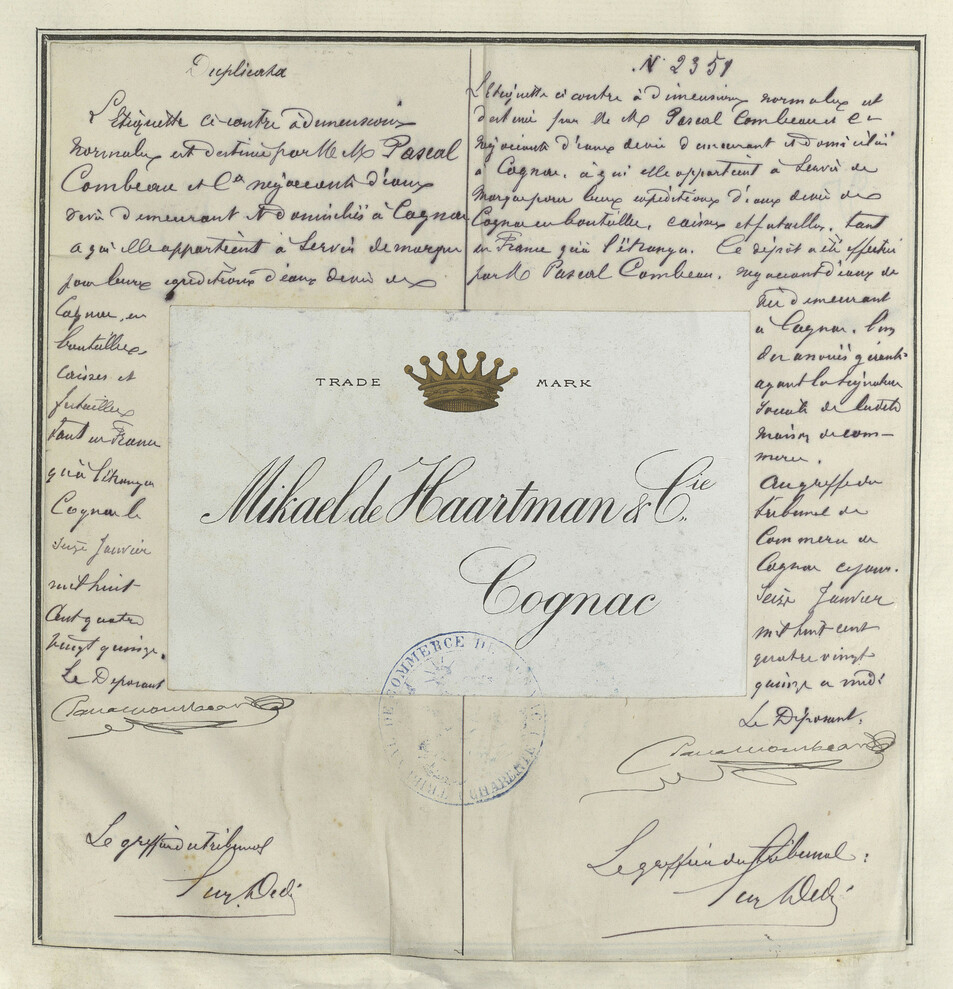 Duplicata
L'Etiquette ci contre à dimensions
normales est destinée par M. M. Pascal
Combeau et Cie négociants d'eaux
de vie demeurant et domiciliés à Cognac
a qui elle appartient à servir de marque
pour leurs expéditions d'eaux de vie de
Cognac, en
bouteilles,
caisses et
futailles
tant en France
qu'à l'étranger
Cognac le
seize Janvier
mil huit
cent quatre
vingt quinze.
Le Déposant
Le greffier du tribunal
N° 2351
L'étiquette ci contre à dimensions normales est
destinée par M. M. Pascal Combeau et Cie
négociants d'eaux de vie demeurant et domiciliés
à Cognac, à qui elle appartient à servir de
marque pour leurs expéditions d'eaux de vie de
Cognac en bouteilles, caisses et futailles, tant
en France qu'à l'étranger. Ce dépôt a été effectué
par M. Pascal Combeau, négociant d'eaux de
vie demeurant
à Cognac, l'un
des associés gérants
ayant la signature
sociale de ladite
maison de com-
merce.
Au greffe du
tribunal de
Commerce de
Cognac ce jour.
Seize Janvier
mil huit cent
quatre vingt
quinze a midi
Le Déposant,
Le greffier du tribunal:
TRADE MARK
Mikael de Haartman & Cie.
Cognac
COMMERCE DE
CHARENTE